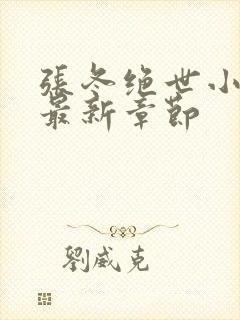 張冬绝世小
最新章節
劉威克